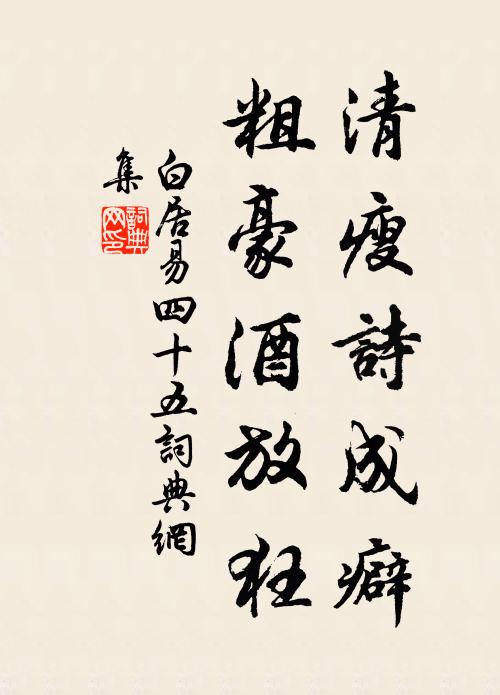 清瘦詩成癖
粗豪酒放狂
白居易四十五詞典網
集
詞典网印